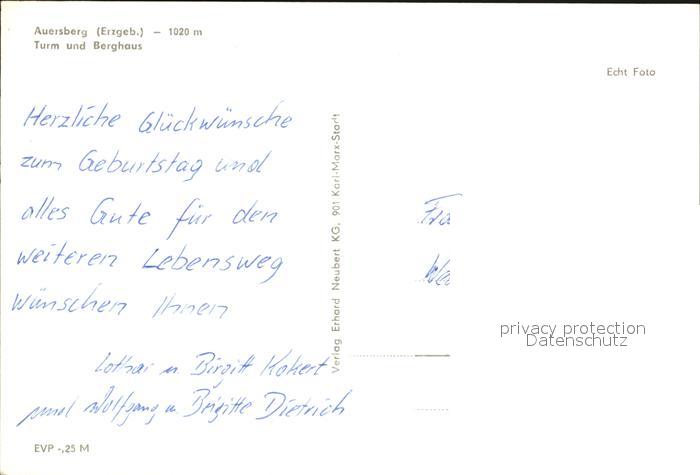 Auersberg (Erzgeb.) – 1020 m
Turm und Berghaus
Echt Foto
Herzliche Glückwünsche
zum Geburtstag und
alles Gute für den
weiteren Lebensweg
wünschen Ihnen
Lothar u. Birgitt Kokert
und Wolfgang u. Brigitte Dietrich
EVP -,25 M
Verlag Erhard Neubert KG, 901 Karl-Marx-Stadt
privacy protection
Datenschutz